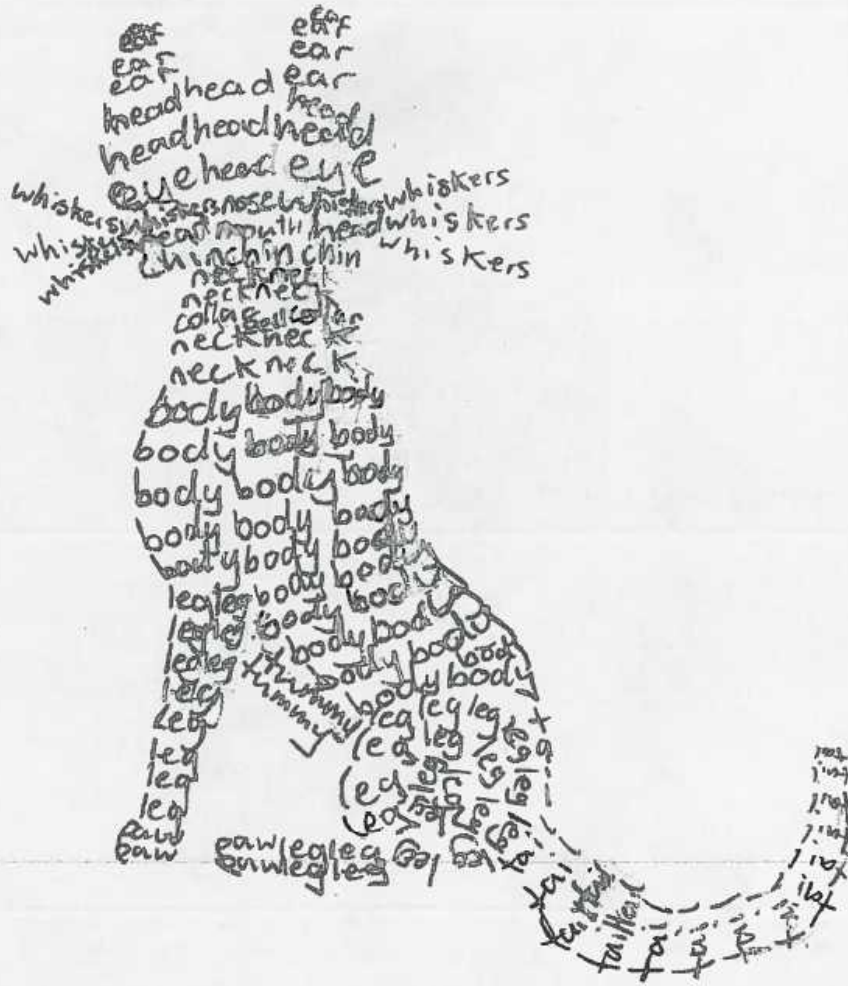 ear ear
ear ear
ear ear
ear ear
headhead head
headheadhead
eye head eye
whiskers whiskers nose whiskers whiskers
whiskers head mouth head whiskers
whiskers chinchinchin whiskers
neckneck
neckneck
collar bell collar
neckneck
neckneck
body body body
body body body
body body body
body body body
body body body
legleg body body
legleg body body
legleg body body body
leg tummy body body body
leg tummy body body
leg leg leg leg
leg leg leg leg
leg leg leg leg
leg leg leg leg leg
paw paw leg leg leg leg
paw paw leg leg
tail
tail
tail
tail
tail
tail
tail
tail